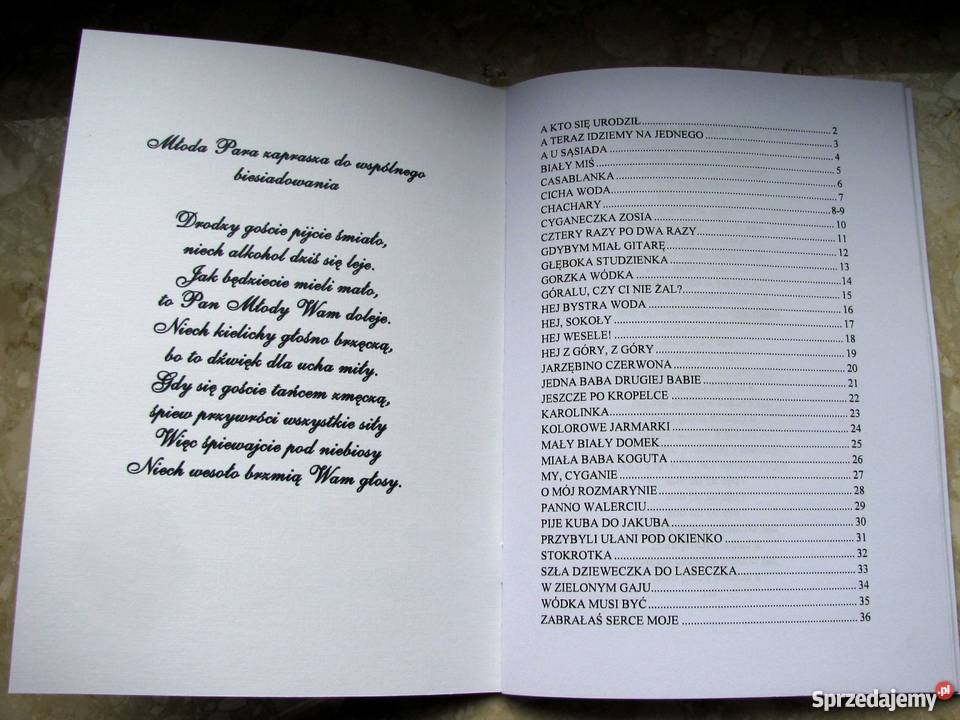 Młoda Para zaprasza do wspólnego
biesiadowania
Drodzy goście pijcie śmiało,
niech alkohol dziś się leje.
Jak będziecie mieli mało,
to Pan Młody Wam doleje.
Niech kielichy głośno brzęczą,
bo to dźwięk dla ucha miły.
Gdy się goście tańcem zmęczą,
śpiew przywróci wszystkie siły
Więc śpiewajcie pod niebiosy
Niech wesoło brzmią Wam głosy.
A KTO SIĘ URODZIŁ 2
A TERAZ IDZIEMY NA JEDNEGO 3
A U SĄSIADA 4
BIAŁY MIŚ 5
CASABLANKA 6
CICHA WODA 7
CHACHARY 8-9
CYGANECZKA ZOSIA 10
CZTERY RAZY PO DWA RAZY 11
GDYBYM MIAŁ GITARĘ 12
GŁĘBOKA STUDZIENKA 13
GORZKA WÓDKA 14
GÓRALU, CZY CI NIE ŻAL? 15
HEJ BYSTRA WODA 16
HEJ, SOKOŁY 17
HEJ WESELE! 18
HEJ Z GÓRY, Z GÓRY 19
JARZĘBINO CZERWONA 20
JEDNA BABA DRUGIEJ BABIE 21
JESZCZE PO KROPELCE 22
KAROLINKA 23
KOLOROWE JARMARKI 24
MAŁY BIAŁY DOMEK 25
MIAŁA BABA KOGUTA 26
MY, CYGANIE 27
O MÓJ ROZMARYNIE 28
PANNO WALERCIU 29
PIJE KUBA DO JAKUBA 30
PRZYBYLI UŁANI POD OKIENKO 31
STOKROTKA 32
SZŁA DZIEWECZKA DO LASECZKA 33
W ZIELONYM GAJU 34
WÓDKA MUSI BYĆ 35
ZABRAŁAŚ SERCE MOJE 36
Sprzedajemy.pl